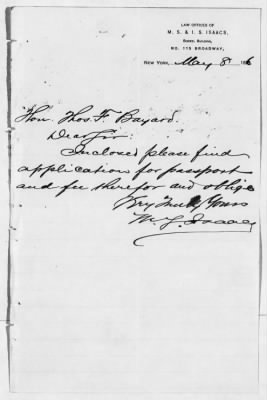 LAW OFFICES OF
M. S. & I. S. ISAACS,
NO. 115 BROADWAY,
NEW YORK, May 8 1886
Hon. Thos. F. Bayard.
Dear Sir:
Inclosed please find
application for passport
and fee therefor and oblige
Very Truly Yours
M. S. Isaacs